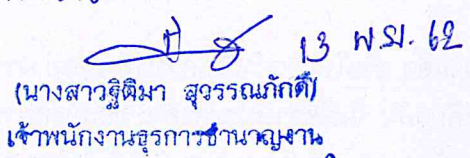 13 พ.ย. 62
(นางสาวฐิติมา สุวรรณภักดี)
เจ้าพนักงานธุรการชำนาญงาน